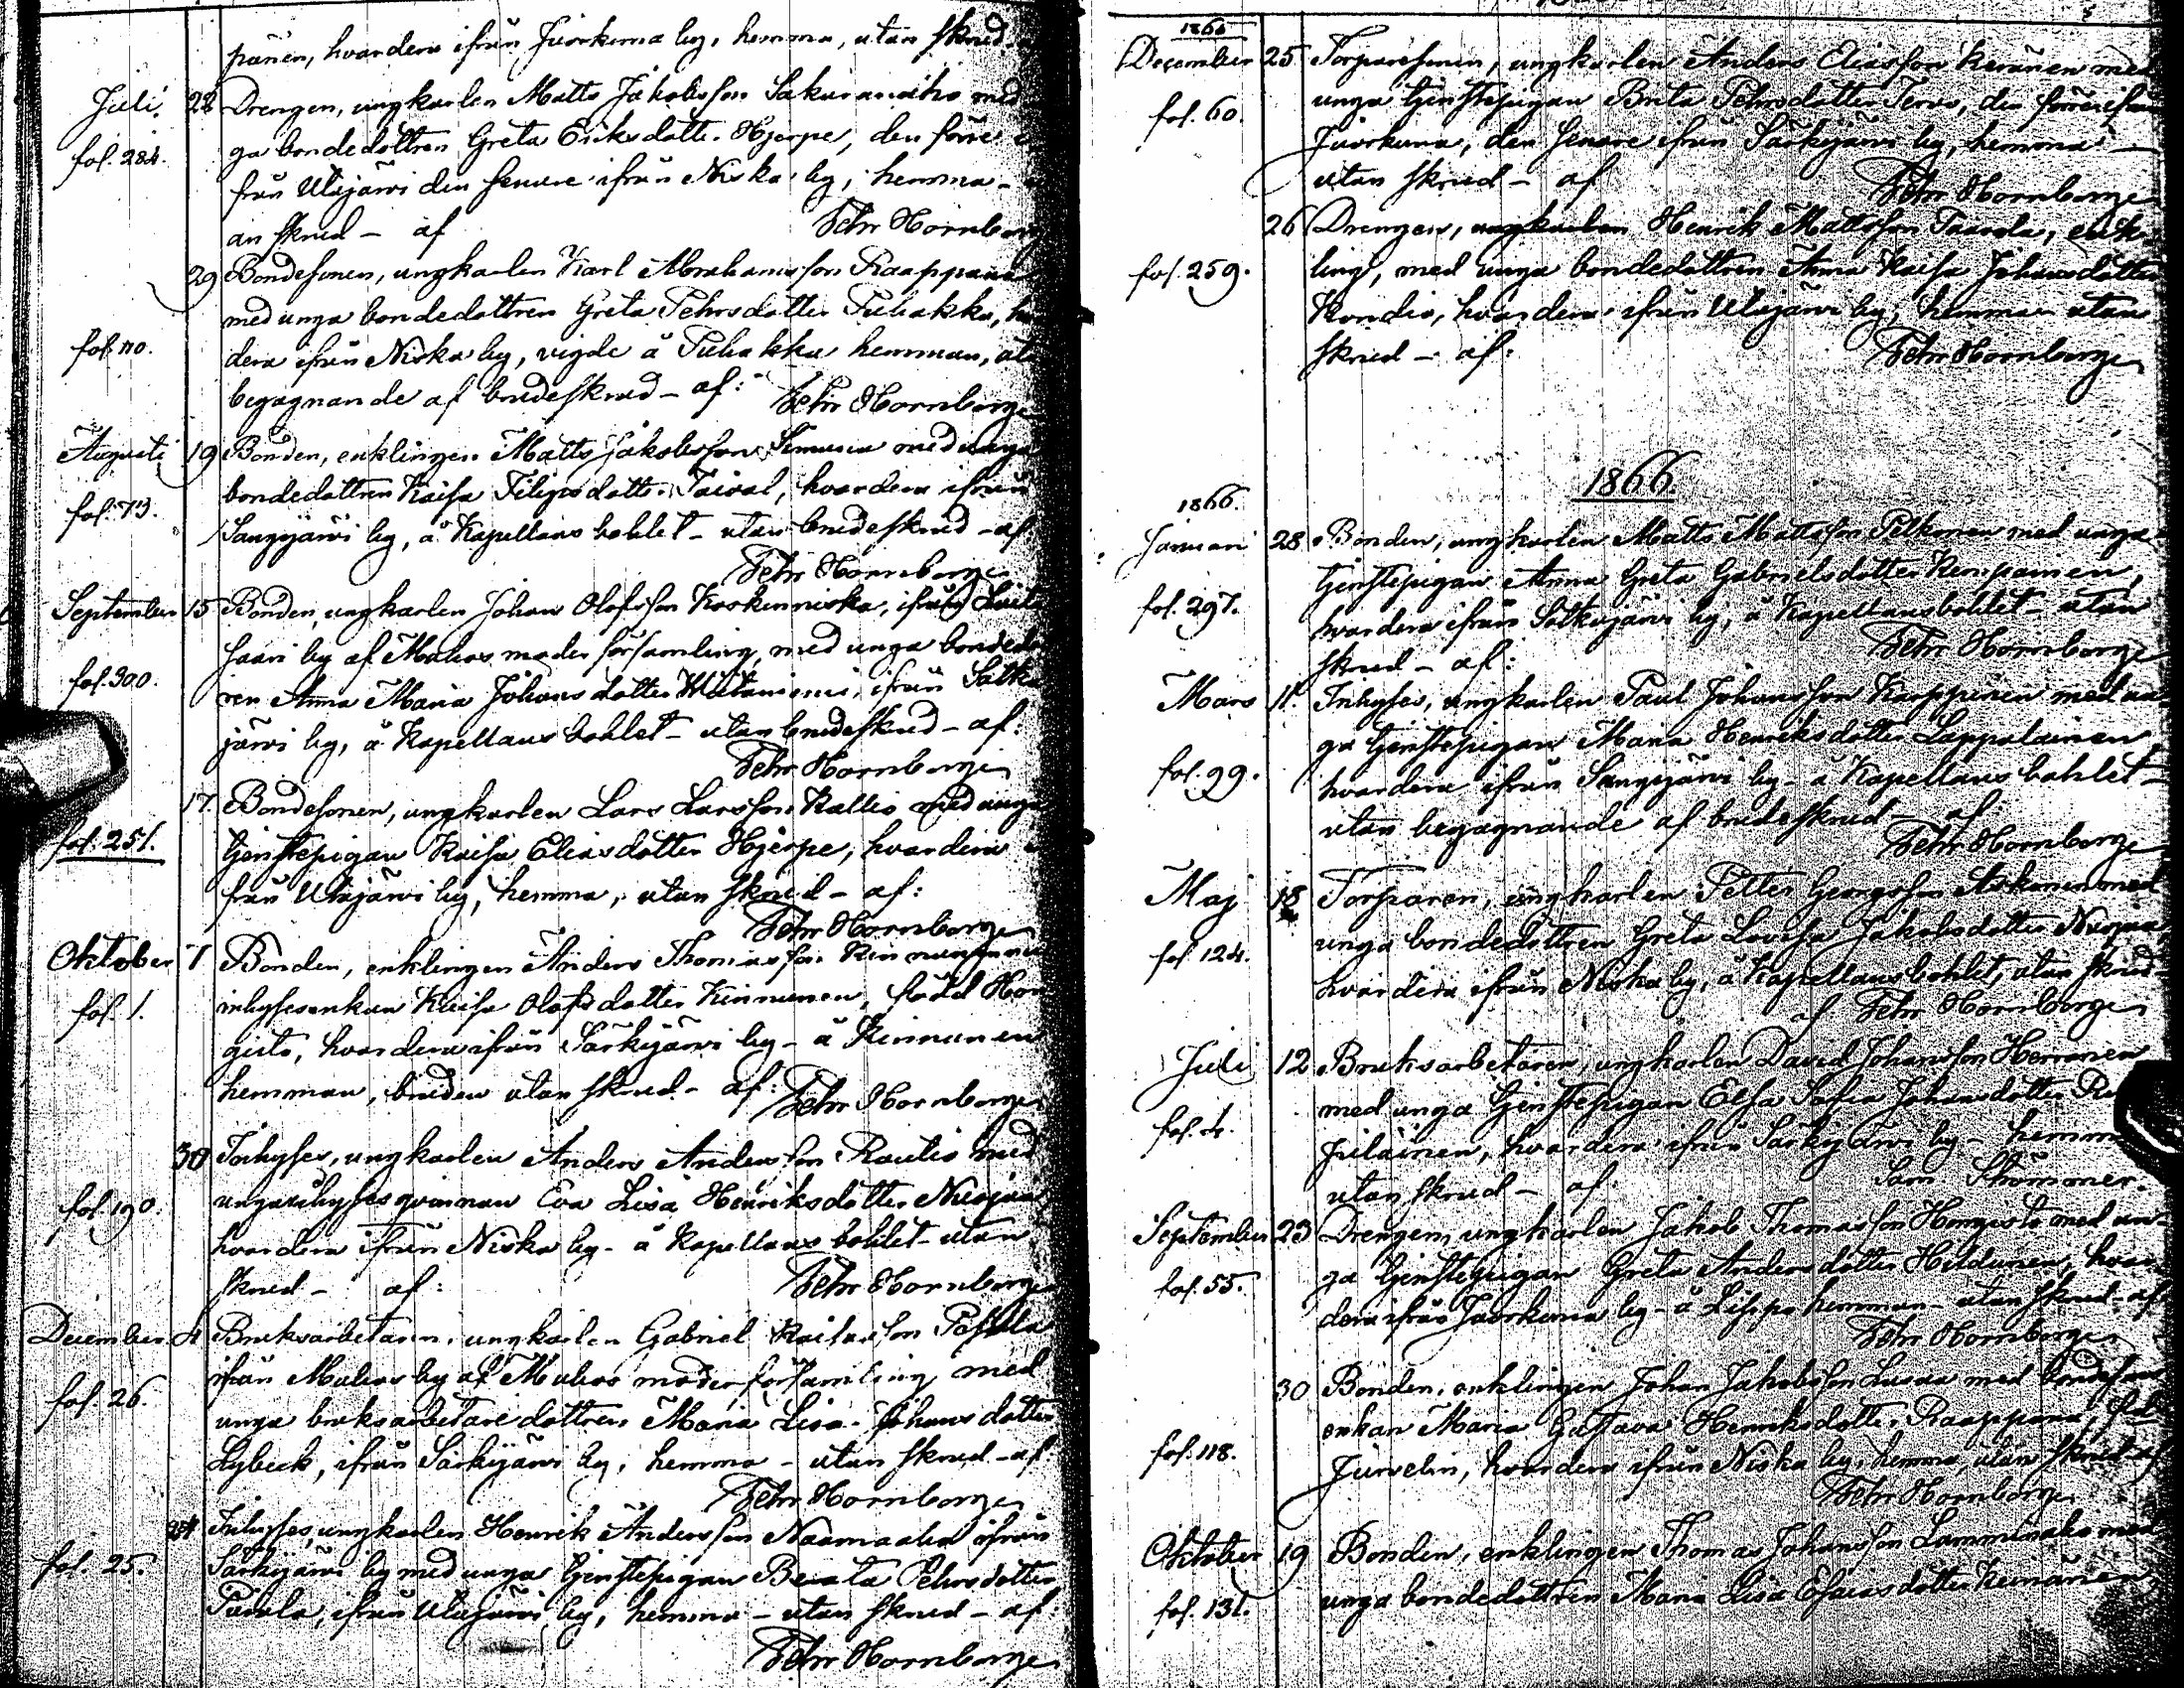 panen, hvardera ifrån Juorkuna by, hemma, utan skrud
Juli 22 Drengen, ungkarlen Matts Jakobsson Sakaranaho med
fol. 284. ga bondedottren Greta Eriksdotter Hjerpe, den förre
från Utajärvi den senare ifrån Niska by, hemma-
an skrud - af Pehr Hornborg
29 Bondesonen, ungkarlen Karl Abrahamsson Raappana
med unga bondedottren Greta Pehrsdotter Puhakka,
fol. 110. dera ifrån Niska by, vigde å Puhakka hemman,
begagnande af brudeskrud - af: Pehr Hornborg
Augusti 19 Bonden, enklingen Matts Jakobsson med unga
fol. 73. bondedottren Kaisa Filipsdotter Taival, hvardera ifrån
Sangijärvi by, å Kapellans bohlet - utan brudeskrud - af
Pehr Hornborg
September 15 Bonden, ungkarlen Johan Olofsson Koskenniska, ifrån
saari by af Muhos moder församling, med unga bondedo
fol. 300. ren Anna Maria Johansdotter ifrån Sotka
järvi by, å Kapellans bohlet - utan brudeskrud - af:
Pehr Hornborg
17. Bondesonen, ungkarlen Lars Larsson Kallio med unga
fol. 251. tjenstepigan Kaisa Eliasdotter Hjerpe, hvardera
från Utajärvi by, hemma, utan skrud - af:
Pehr Hornborg
Oktober 7 Bonden, enklingen Anders Thomasson Kinnunen
fol. 1. inhysesenkan Kaisa Olofsdotter Kinnunen, född Hon
gisto, hvardera ifrån Särkijärvi by - å Kinnunen
hemman, bruden utan skrud - af: Pehr Hornborg
30 Inhyses, ungkarlen Anders Andersson Rautio med
fol. 190. unga inhysesqvinnan Eva Lisa Henriksdotter Nuojua
hvardera ifrån Niska by - å Kapellans bohlet - utan
skrud - af: Pehr Hornborg
December 4 Bruksarbetaren, ungkarlen Gabriel
ifrån Muhos by af Muhos moder församling med
fol. 26. unga bruksarbetare dottren Maria Lisa Johansdotter
Lybeck, ifrån Särkijärvi by, hemma - utan skrud - af
Pehr Hornborg
24 Inhyses, ungkarlen Henrik Andersson Naamaaho ifrån
fol. 25. Särkijärvi by med unga tjenstepigan Beata Pehrsdotter
Paavola, ifrån Utajärvi by, hemma - utan skrud - af:
Pehr Hornborg
1865
December 25 Torparesonen, ungkarlen Anders Eliasson Keränen med
fol. 60. unga tjenstepigan Brita Pehrsdotter Tervo, den förre ifrån
Juorkuna, den senare ifrån Särkijärvi by, hemma -
utan skrud - af Pehr Hornborg
26 Drengen, ungkarlen Henrik Mattsson Taavola, enk
fol. 259. ling, med unga bondedottren Anna Kaisa Johansdotter
Kondio, hvardera ifrån Utajärvi by, hemma - utan
skrud - af: Pehr Hornborg
1866.
1866.
Januari 28 Bonden, ungkarlen Matts Mattsson Pelkonen med unga
fol. 297. tjenstepigan Anna Greta Gabrielsdotter Kemppainen,
hvardera ifrån Sotkajärvi by, å Kapellansbohlet - utan
skrud - af: Pehr Hornborg
Mars 11. Inhyses, ungkarlen Paul Johansson Karppinen med un
fol. 99. ga tjenstepigan Maria Henriksdotter Lappalainen,
hvardera ifrån Sangijärvi by - å Kapellans bohlet -
utan begagnande af brudeskrud - af
Pehr Hornborg
Maj 18 Torparen, ungkarlen Petter Georgsson med
fol. 124. unga bondedottren Greta Lovisa Jakobsdotter Nuojua
hvardera ifrån Niska by, å Kapellansbohlet, utan skrud
af Pehr Hornborg
Juli 12 Bruksarbetaren, ungkarlen David Johansson Heronen
fol. 4. med unga tjenstepigan Elsa Sofia Johansdotter
hvardera ifrån Särkijärvi by - hemma
utan skrud - af: Sam Strömmer.
September 23 Drengen, ungkarlen Jakob Thomasson Hongisto med un
fol. 55. ga tjenstepigan Greta Andersdotter Hildunen, hvar
dera ifrån Juorkuna by - å Lippo hemman - utan skrud - af
Pehr Hornborg
30 Bonden, enklingen Johan Jakobsson Lusua med bondesons
fol. 118. enkan Maria Gustava Henriksdotter Raappana, född
Jurvelin, hvardera ifrån Niska by, hemma, utan skrud af
Pehr Hornborg
Oktober 19 Bonden, enklingen Thomas Johansson Lamminaho med
fol. 131. unga bondedottren Maria Lisa Esaiasdotter Keränen